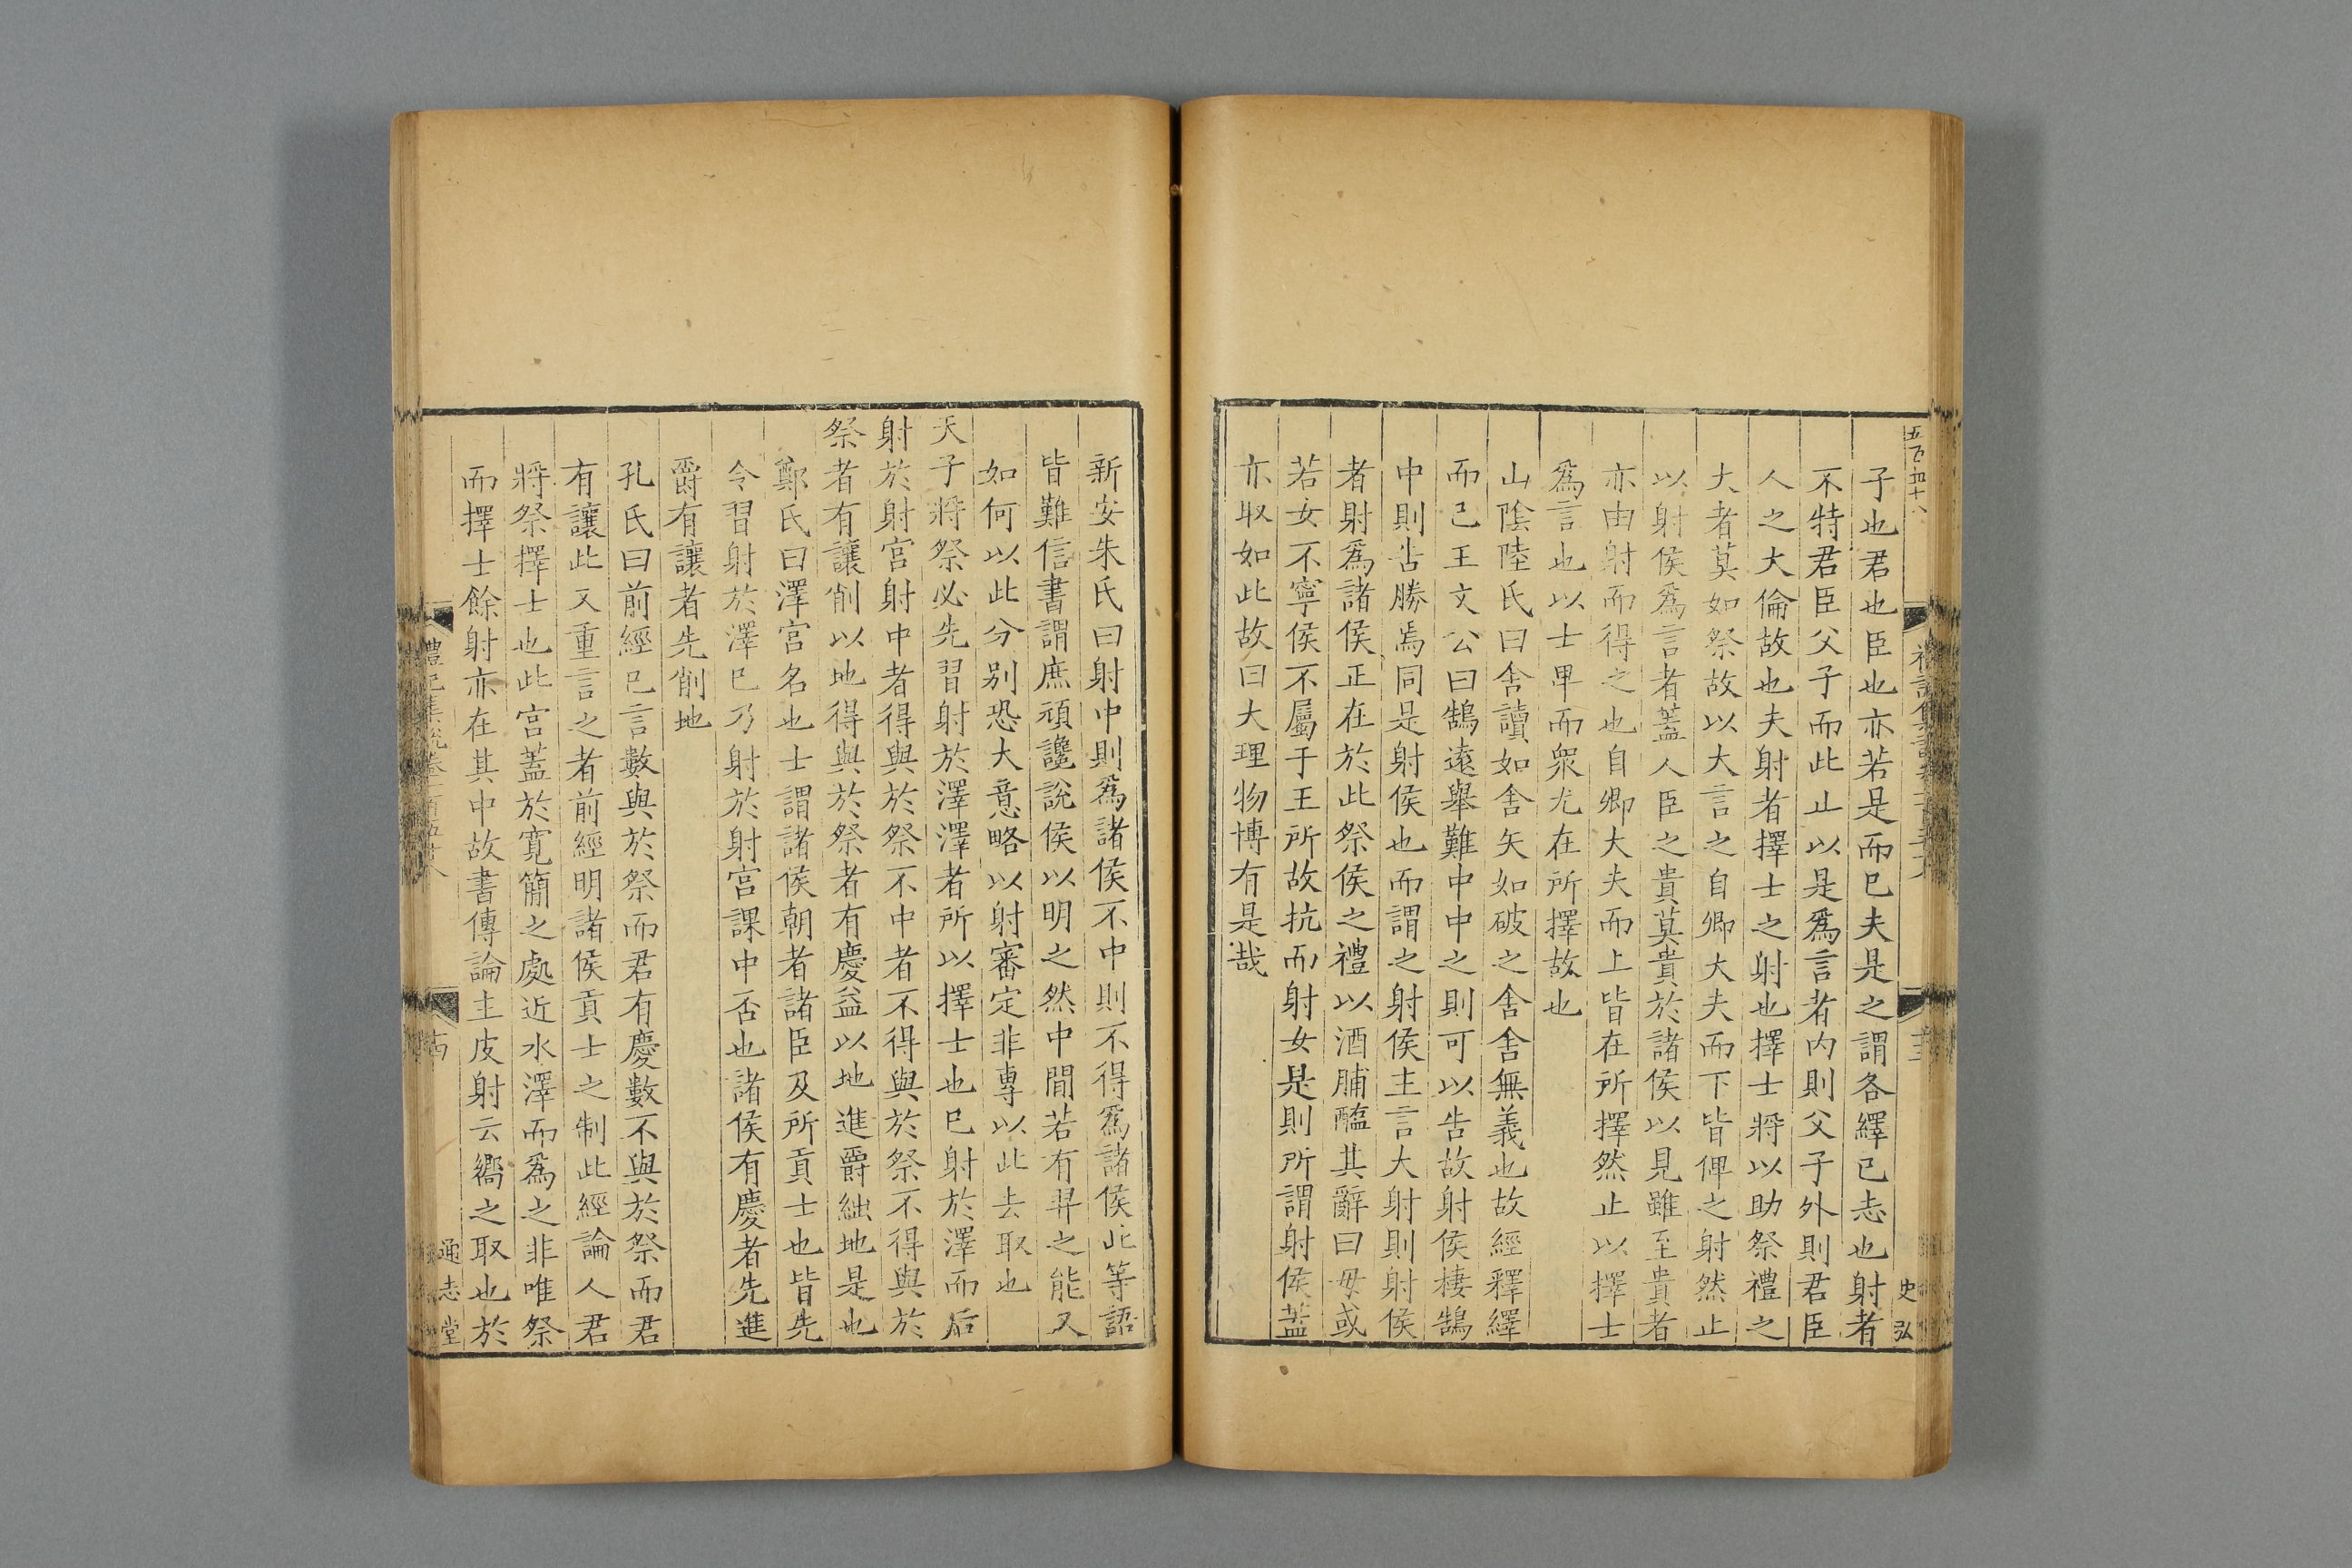 子也君也臣也亦若是而已夫是之謂各繹己志也射者
不特君臣父子而此止以是爲言者内則父子外則君臣
人之大倫故也夫射者擇士之射也擇士將以助祭禮之
大者莫如祭故以大言之自卿大夫而下皆俾之射然止
以射侯爲言者蓋人臣之貴莫貴於諸侯以見雖至貴者
亦由射而得之也自卿大夫而上皆在所擇然止以擇士
爲言也以士卑而衆尤在所擇故也
山陰陸氏曰舍讀如舍矢如破之舍舍無義也故經釋繹
而已王文公曰鵠遠舉難中中之則可以告故射侯棲鵠
中則告勝焉同是射侯也而謂之射侯主言大射則射侯
者射爲諸侯正在於此祭侯之禮以酒脯醢其辭曰毋或
若女不寧侯不屬于王所故抗而射女是則所謂射侯蓋
亦取如此故曰大理物博有是哉
史弘
新安朱氏曰射中則爲諸侯不中則不得爲諸侯此等語
皆難信書謂庶頑讒說侯以明之然中間若有羿之能又
如何以此分别恐大意略以射審定非專以此去取也
天子將祭必先習射於澤澤者所以擇士也已射於澤而后
射於射宮射中者得與於祭不中者不得與於祭不得與於
祭者有讓削以地得與於祭者有慶益以地進爵絀地是也
鄭氏曰澤宮名也士謂諸侯朝者諸臣及所貢士也皆先
令習射於澤已乃射於射宮課中否也諸侯有慶者先進
爵有讓者先削地
孔氏曰前經已言數與於祭而君有慶數不與於祭而君
有讓此又重言之者前經明諸侯貢士之制此經論人君
將祭擇士也此宮蓋於寛簡之處近水澤而爲之非唯祭
而擇士餘射亦在其中故書傳論主皮射云嚮之取也於
禮記集說卷一百五十八
通志堂